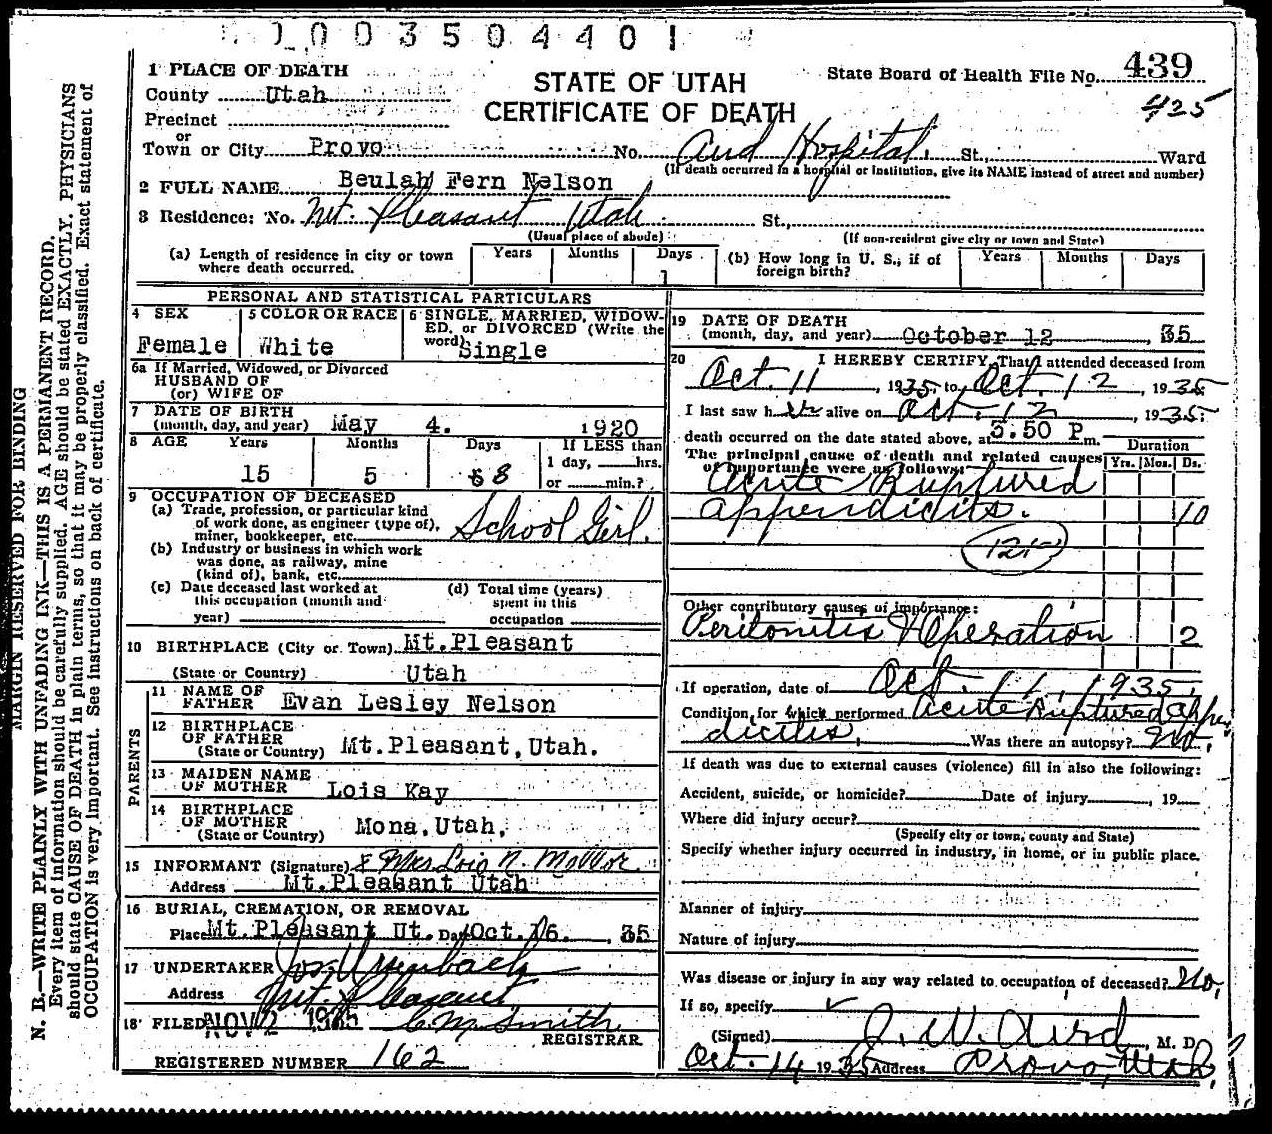 1003504401
1 PLACE OF DEATH
County Utah
Precinct
or
Town or City Provo
STATE OF UTAH
CERTIFICATE OF DEATH
State Board of Health File No. 439
425
No. Aird Hospital. St., Ward
(If death occurred in a hospital or institution, give its NAME instead of street and number)
2 FULL NAME Beulah Fern Nelson
3 Residence: No. Mt. Pleasant Utah St.,
(Usual place of abode) (If non-resident give city or town and State)
(a) Length of residence in city or town where death occurred. Years Months Days 1
(b) How long in U. S., if of foreign birth? Years Months Days
PERSONAL AND STATISTICAL PARTICULARS
4 SEX Female
5 COLOR OR RACE White
6 SINGLE, MARRIED, WIDOWED, or DIVORCED (Write the word) Single
6a If Married, Widowed, or Divorced
HUSBAND OF
(or) WIFE OF
7 DATE OF BIRTH
(month, day, and year) May 4. 1920
8 AGE Years Months Days If LESS than
15 5 8 1 day, hrs.
or min.?
9 OCCUPATION OF DECEASED
(a) Trade, profession, or particular kind
of work done, as engineer (type of),
miner, bookkeeper, etc. School Girl.
(b) Industry or business in which work
was done, as railway, mine
(kind of), bank, etc.
(c) Date deceased last worked at
this occupation (month and
year)
(d) Total time (years)
spent in this
occupation
10 BIRTHPLACE (City or Town) Mt.Pleasant
(State or Country) Utah
PARENTS
11 NAME OF
FATHER Evan Lesley Nelson
12 BIRTHPLACE
OF FATHER
(State or Country) Mt.Pleasant,Utah.
13 MAIDEN NAME
OF MOTHER Lois Kay
14 BIRTHPLACE
OF MOTHER
(State or Country) Mona.Utah.
15 INFORMANT (Signature) Mrs Lois N.
Address Mt.Pleasant Utah
16 BURIAL, CREMATION, OR REMOVAL
Place Mt.Pleasant Ut. Date Oct.16. , 35
17 UNDERTAKER Jos Ursenbach
Address Mt. Pleasant
18 FILED NOV 2 1935 C.M. Smith
REGISTRAR
REGISTERED NUMBER 162
19 DATE OF DEATH
(month, day, and year) October 12 , 35
20 I HEREBY CERTIFY, That I attended deceased from
Oct. 11, 1935, to Oct. 12, 1935
I last saw her alive on Oct. 12, 1935.
death occurred on the date stated above, at 3.50 P.m.
The principal cause of death and related causes
of importance were as follows: Duration Yrs. Mos. Ds.
Acute Ruptured
appendicitis. 10
121
Other contributory causes of importance:
Peritonitis & Operation 2
If operation, date of Oct. 11, 1935.
Condition for which performed Acute Ruptured appen
dicitis. Was there an autopsy? No.
If death was due to external causes (violence) fill in also the following:
Accident, suicide, or homicide? Date of injury , 19
Where did injury occur?
(Specify city or town, county and State)
Specify whether injury occurred in industry, in home, or in public place.
Manner of injury
Nature of injury
Was disease or injury in any way related to occupation of deceased? No.
If so, specify
(Signed) J. W. Aird, M. D.
Oct. 14 1935 Address Provo, Utah.
MARGIN RESERVED FOR BINDING
N. B.—WRITE PLAINLY WITH UNFADING INK—THIS IS A PERMANENT RECORD.
Every item of information should be carefully supplied. AGE should be stated EXACTLY. PHYSICIANS
should state CAUSE OF DEATH in plain terms, so that it may be properly classified. Exact statement of
OCCUPATION is very important. See instructions on back of certificate.